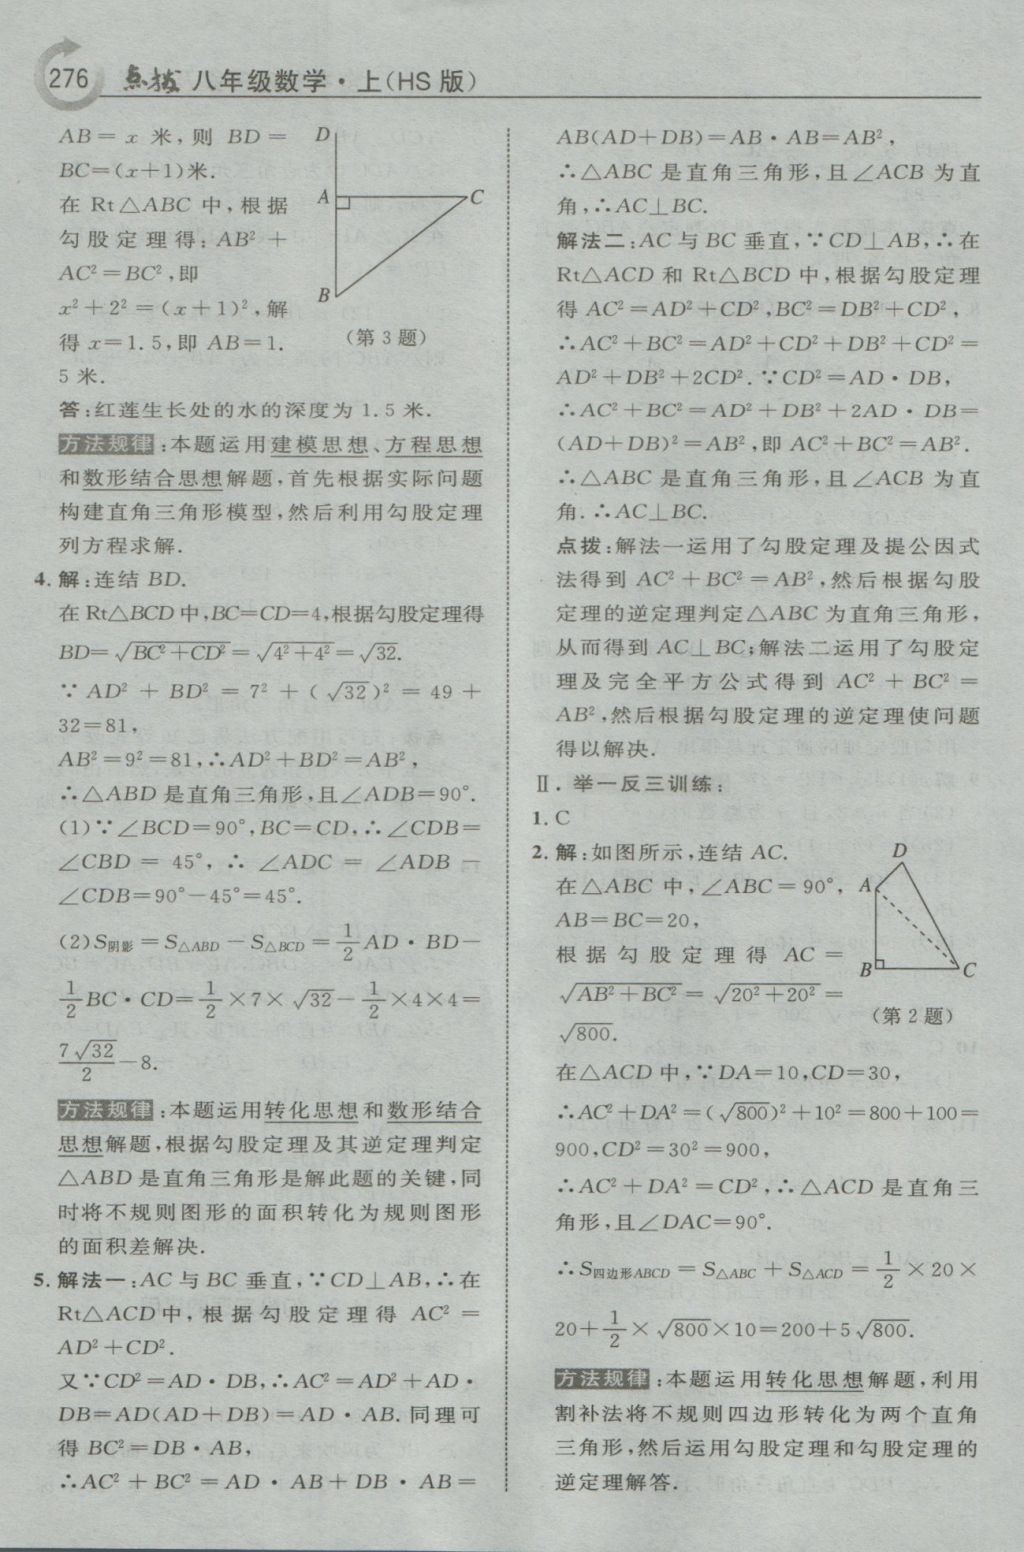 276 点拨 八年级数学·上(HS版)
AB=x 米,则 BD=
BC=(x+1)米.
在 Rt△ABC 中,根据
勾股定理得:AB²+
AC²=BC²,即
x²+2²=(x+1)²,解
得 x=1.5,即 AB=1.
5 米.
D
A
C
B
(第3题)
答:红莲生长处的水的深度为1.5米.
方法规律:本题运用建模思想、方程思想
和数形结合思想解题,首先根据实际问题
构建直角三角形模型,然后利用勾股定理
列方程求解.
4.解:连结 BD.
在Rt△BCD中,BC=CD=4,根据勾股定理得
BD=√(BC²+CD²)=√(4²+4²)=√32.
∵AD²+BD²=7²+(√32)²=49+
32=81,
AB²=9²=81,∴AD²+BD²=AB²,
∴△ABD是直角三角形,且∠ADB=90°.
(1)∵∠BCD=90°,BC=CD,∴∠CDB=
∠CBD=45°,∴∠ADC=∠ADB-
∠CDB=90°-45°=45°.
(2)S阴影=S△ABD-S△BCD=1/2 AD·BD-
1/2 BC·CD=1/2×7×√32-1/2×4×4=
7√32/2-8.
方法规律:本题运用转化思想和数形结合
思想解题,根据勾股定理及其逆定理判定
△ABD是直角三角形是解此题的关键,同
时将不规则图形的面积转化为规则图形
的面积差解决.
5.解法一:AC与BC垂直,∵CD⊥AB,∴在
Rt△ACD中,根据勾股定理得 AC²=
AD²+CD².
又∵CD²=AD·DB,∴AC²=AD²+AD·
DB=AD(AD+DB)=AD·AB.同理可
得 BC²=DB·AB,
∴AC²+BC²=AD·AB+DB·AB=
AB(AD+DB)=AB·AB=AB²,
∴△ABC是直角三角形,且∠ACB为直
角,∴AC⊥BC.
解法二:AC与BC垂直,∵CD⊥AB,∴在
Rt△ACD和Rt△BCD中,根据勾股定理
得 AC²=AD²+CD²,BC²=DB²+CD²,
∴AC²+BC²=AD²+CD²+DB²+CD²=
AD²+DB²+2CD².∵CD²=AD·DB,
∴AC²+BC²=AD²+DB²+2AD·DB=
(AD+DB)²=AB²,即 AC²+BC²=AB².
∴△ABC是直角三角形,且∠ACB为直
角.∴AC⊥BC.
点拨:解法一运用了勾股定理及提公因式
法得到 AC²+BC²=AB²,然后根据勾股
定理的逆定理判定△ABC为直角三角形,
从而得到 AC⊥BC;解法二运用了勾股定
理及完全平方公式得到 AC²+BC²=
AB²,然后根据勾股定理的逆定理使问题
得以解决.
Ⅱ.举一反三训练:
1.C
2.解:如图所示,连结 AC.
在△ABC中,∠ABC=90°,
AB=BC=20,
根据勾股定理得 AC=
√(AB²+BC²)=√(20²+20²)=
√800.
D
A
B
C
(第2题)
在△ACD中,∵DA=10,CD=30,
∴AC²+DA²=(√800)²+10²=800+100=
900,CD²=30²=900,
∴AC²+DA²=CD²,∴△ACD是直角三
角形,且∠DAC=90°.
∴S四边形ABCD=S△ABC+S△ACD=1/2×20×
20+1/2×√800×10=200+5√800.
方法规律:本题运用转化思想解题,利用
割补法将不规则四边形转化为两个直角
三角形,然后运用勾股定理和勾股定理的
逆定理解答.